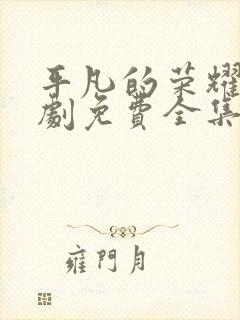 平凡的荣耀
劇免費全集
雍門月